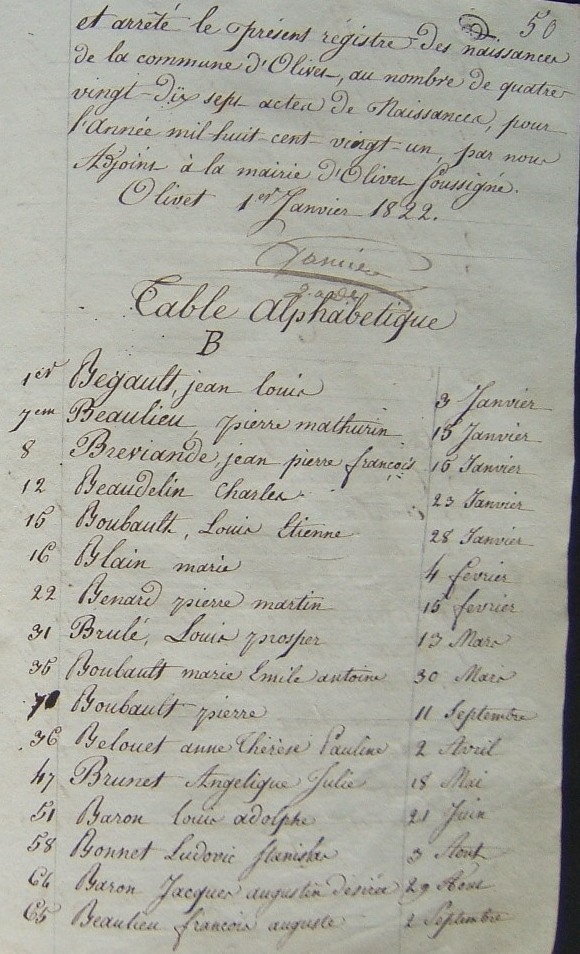 50
et arrêté le présent régistre des naissances
de la commune d'Olivet, au nombre de quatre
vingt-dix sept actes de Naissances, pour
l'année mil-huit-cent-vingt-un, par nous
Adjoint à la mairie d'Olivet Soussigné.
Olivet 1er Janvier 1822.
Table Alphabetique
B
1er Begault, jean louis 3 Janvier
7em Beaulieu, pierre mathurin 15 Janvier
8 Breviande, jean pierre françois 16 Janvier
12 Beaudelin Charles 23 Janvier
15 Boubault, Louis Etienne 28 Janvier
16 Blain marie 4 fevrier
22 Benard pierre martin 15 fevrier
31 Brulé, Louis prosper 13 Mars
35 Boubault marie Emile antoine 30 Mars
70 Boubault pierre 11 Septembre
36 Belouet anne Thérèse Pauline 2 Avril
47 Brunet Angelique Julie 18 Mai
51 Baron louis adolphe 21 Juin
58 Bonnet Ludovic Stanislas 3 Aout
64 Baron Jacques augustin désirée 29 Aout
65 Beaulieu françois auguste 2 Septembre